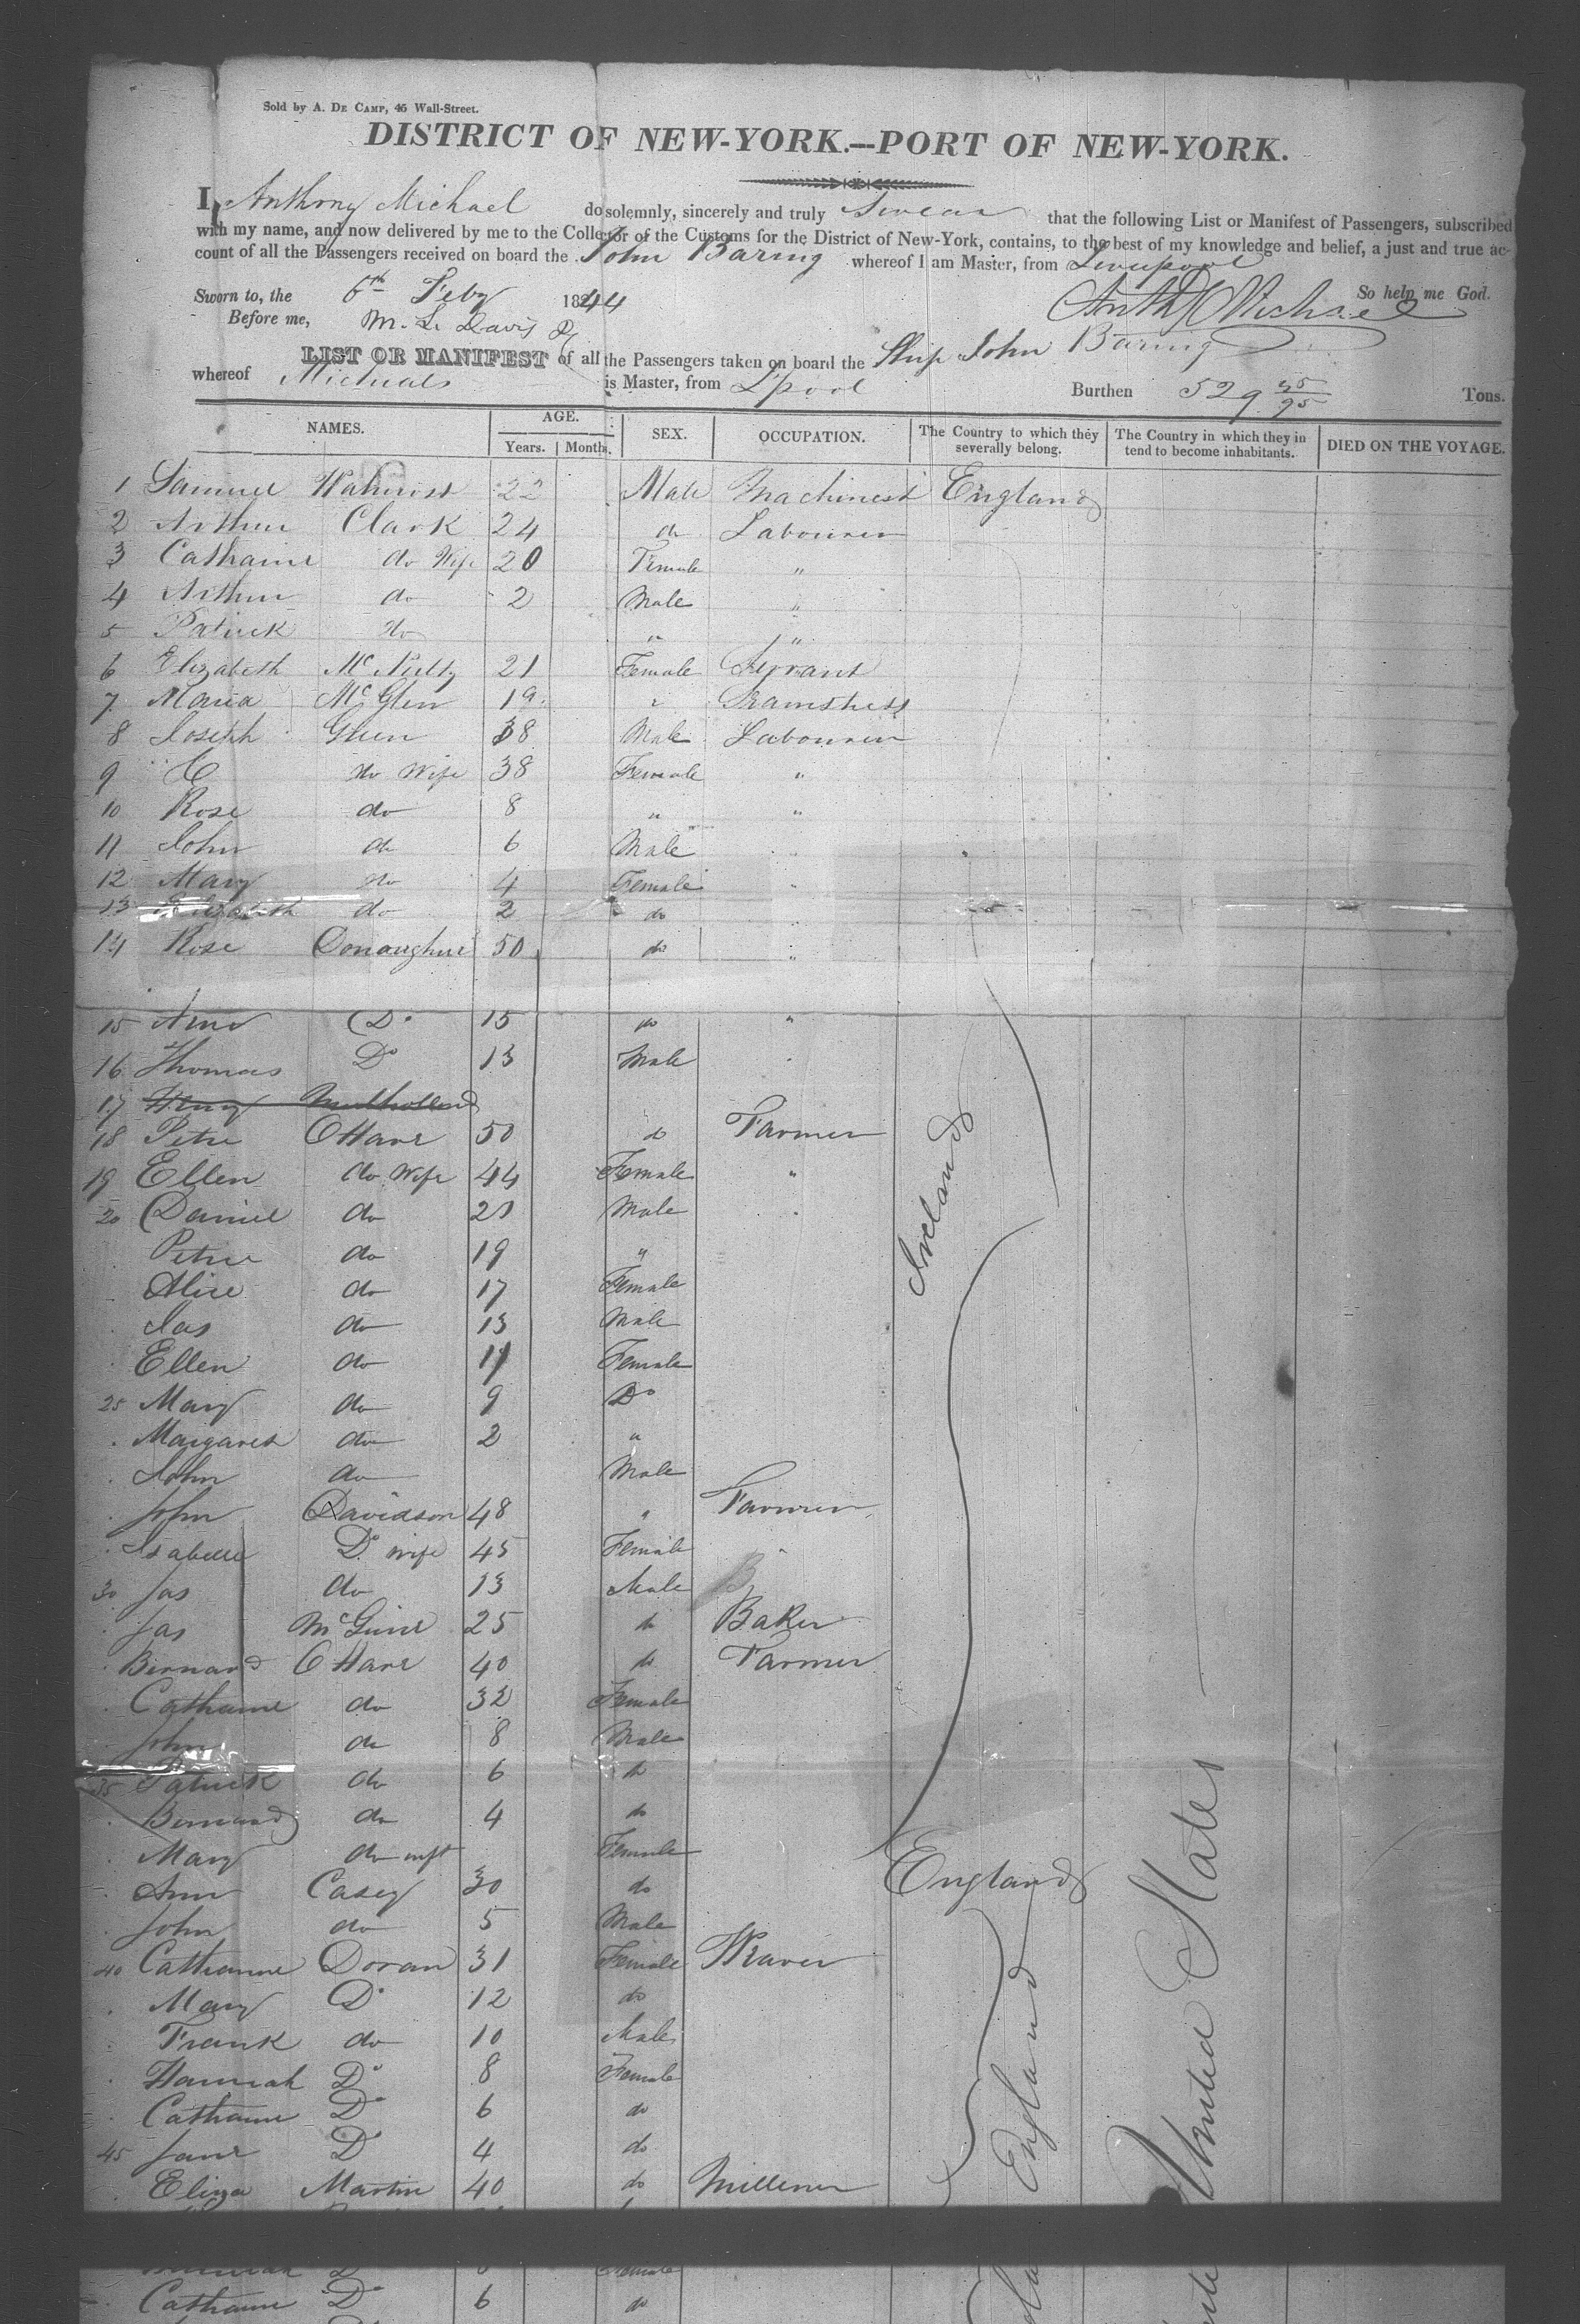 Sold by A. DE CAMP, 45 Wall-Street.
DISTRICT OF NEW-YORK.—PORT OF NEW-YORK.
I, Anthony Michael do solemnly, sincerely and truly Swear that the following List or Manifest of Passengers, subscribed
with my name, and now delivered by me to the Collector of the Customs for the District of New-York, contains, to the best of my knowledge and belief, a just and true ac-
count of all the Passengers received on board the John Baring whereof I am Master, from Liverpool
Sworn to, the 6th Feby 1844 So help me God.
Before me, M. L. Davis Anthy Michael
LIST OR MANIFEST of all the Passengers taken on board the Ship John Baring
whereof Michaels is Master, from L'pool Burthen 529 Tons.
NAMES. AGE. SEX. OCCUPATION. The Country to which they severally belong. The Country in which they intend to become inhabitants. DIED ON THE VOYAGE.
Years. Months.
1 Samuel 22 Male Machinest England
2 Arthur Clark 24 do Labourer
3 Catharine do Wife 20 Female "
4 Arthur do 2 Male "
5 Patrick do " "
6 Elizabeth McNulty 21 Female Servant
7 Maria McGlen 19 " Seamstress
8 Joseph Glen 38 Male Labourer
9 C do Wife 38 Female "
10 Rose do 8 " "
11 John do 6 Male "
12 Mary do 4 Female "
13 Elizabeth do 2 do "
14 Rose Donoughue 50 do "
15 Ann Do 15 do "
16 Thomas Do 13 Male "
17 Henry Mulholland
18 Peter OHare 50 do Farmer
19 Ellen do Wife 44 Female "
20 Daniel do 21 Male "
Peter do 19 "
Alice do 17 Female
Jas do 13 Male
Ellen do 11 Female
25 Mary do 9 Do
Margaret do 2 "
John do Male
John Davidson 48 " Farmer
Isabella Do Wife 45 Female
30 Jas do 13 Male
Jas McGuire 25 do Baker
Bernard OHare 40 do Farmer
Catharine do 32 Female
John do 8 Male
35 Patrick do 6 do
Bernard do 4 do
Mary do inft Female
Ann Casey 30 do
John do 5 Male
40 Catharine Doran 31 Female Weaver
Mary Do 12 do
Frank do 10 Male
Hannah Do 8 Female
Catharine Do 6 do
45 Jane Do 4 do
Eliza Martin 40 do Milliner
Ireland
England
England
United States
Catharine Do 6 do